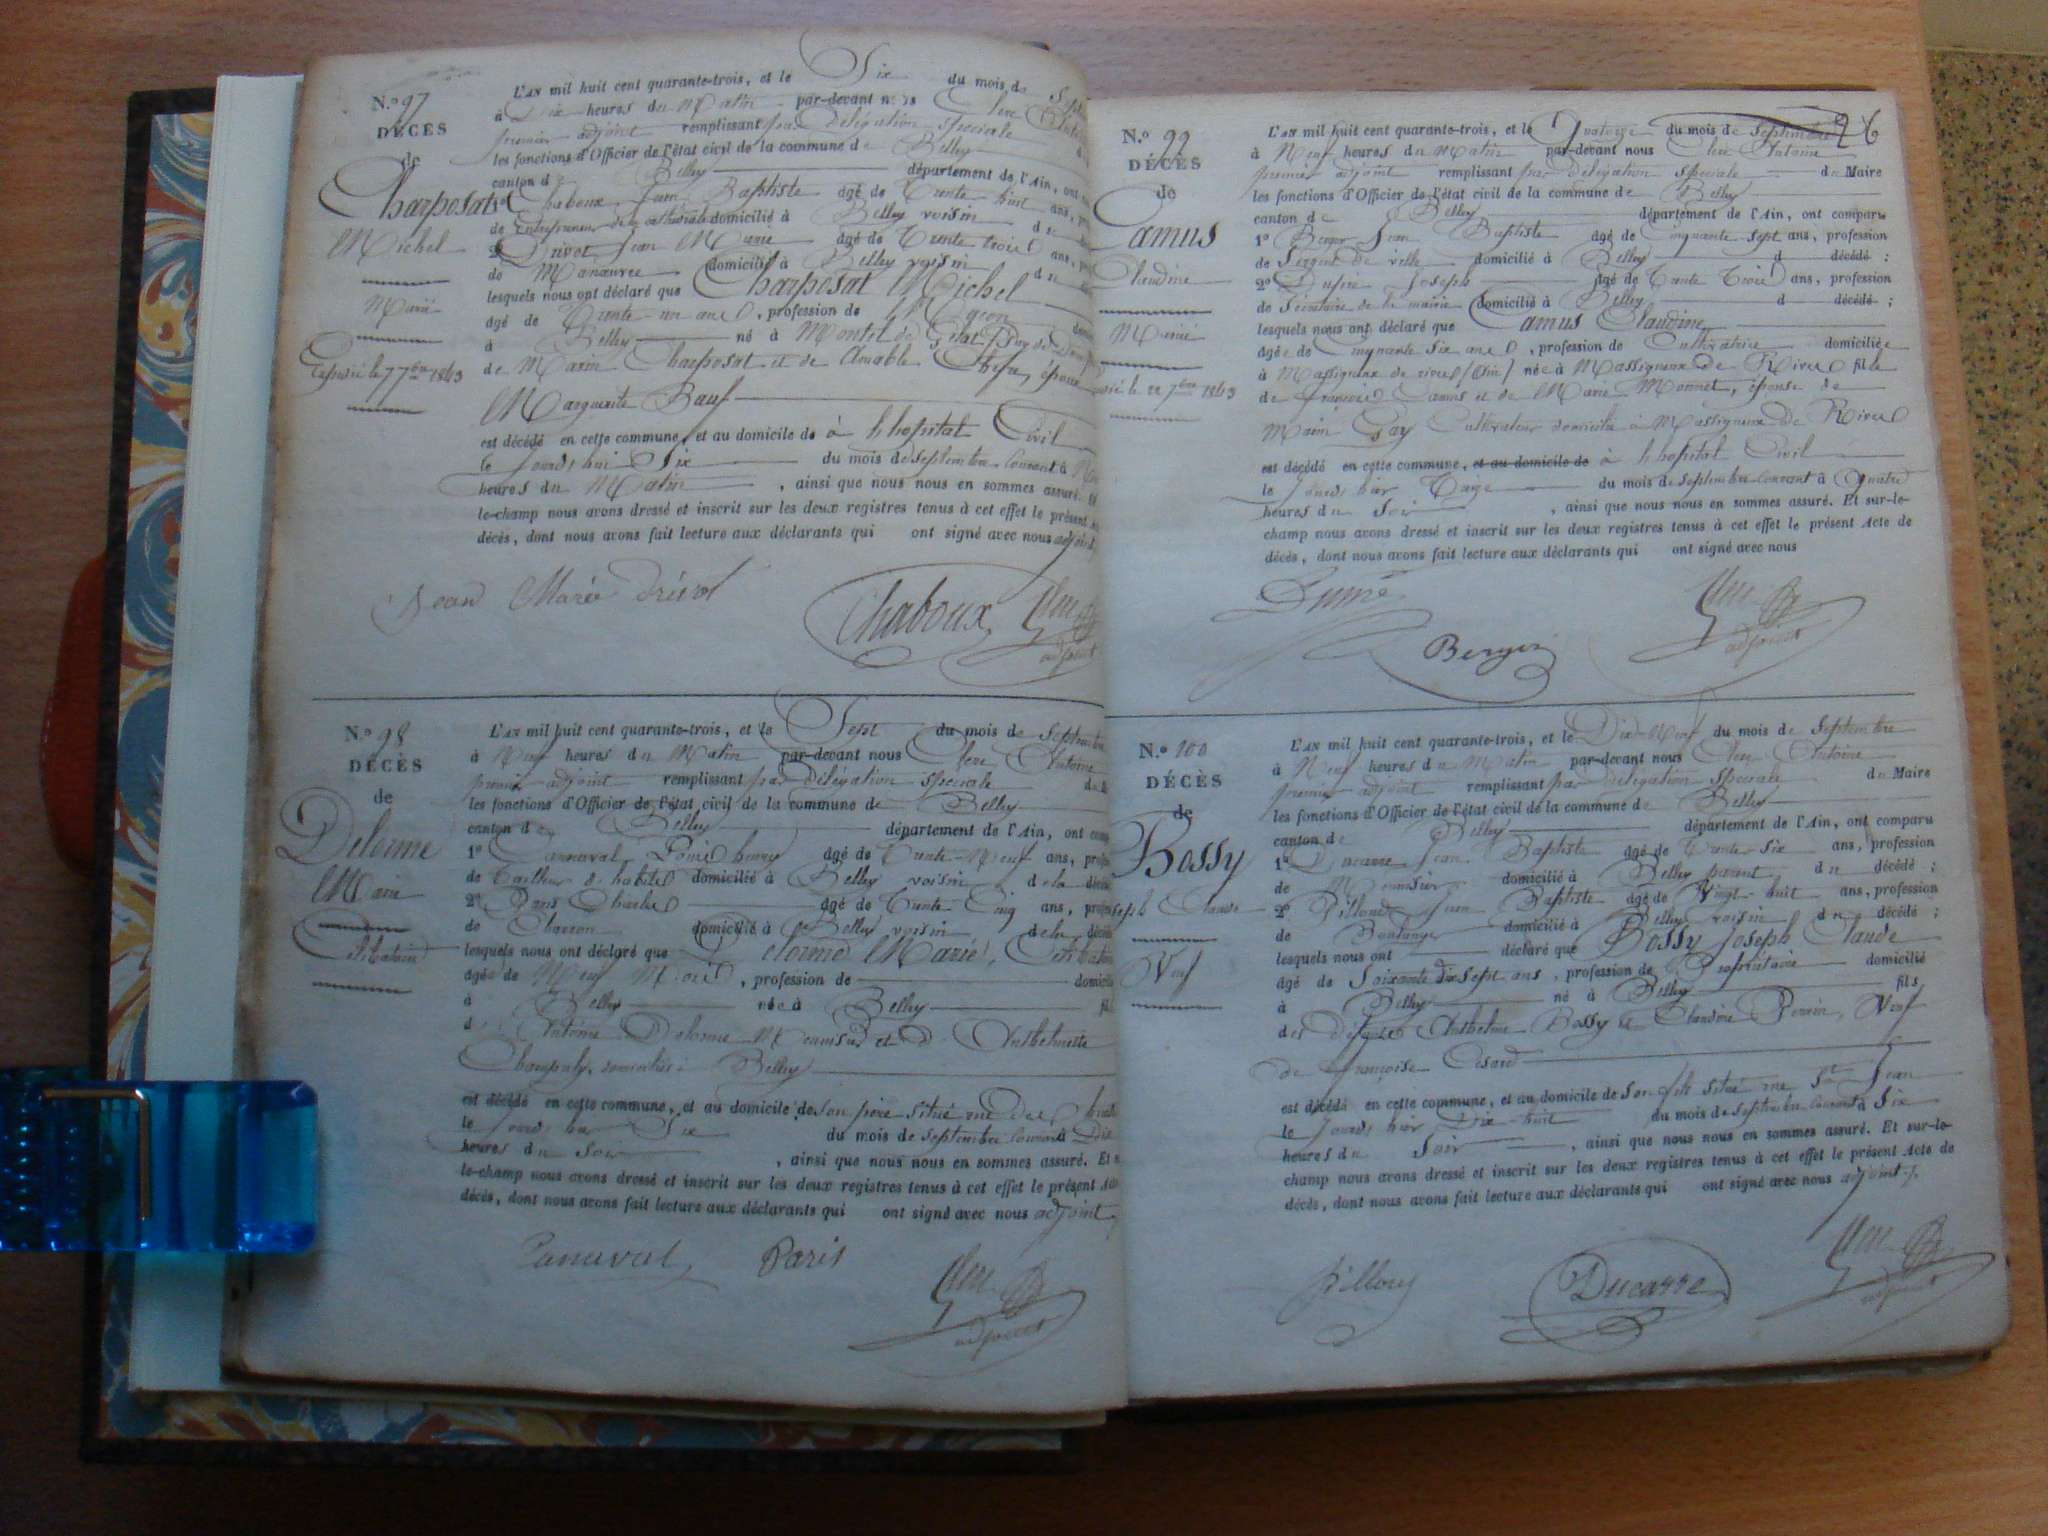 N.º 97
DÉCÈS
de
Charposat
Michel
Marié
Expédié le 7 7bre 1843
L'AN mil huit cent quarante-trois, et le Six du mois de
à Dix heures du Matin par-devant nous Clerc
premier adjoint remplissant par délégation spéciale
les fonctions d'Officier de l'état civil de la commune de Belley
canton de Belley département de l'Ain, ont
1º Chaboux Jean Baptiste âgé de Trente huit ans,
de Entrepreneur de la cathédrale domicilié à Belley voisin du
2º Drivot Jean Marie âgé de Trente trois ans,
de Manœuvre domicilié à Belley voisin du
lesquels nous ont déclaré que Charposat Michel
âgé de Trente un ans, profession de Maçon
à Belley né à Montel de Gelat
de Marin Charposat et de Amable époux
Marguerite Bauf
est décédé en cette commune, et au domicile de à l'hopital Civil
le jourd'hui Six du mois de septembre courant à
heures du Matin, ainsi que nous nous en sommes assuré. Et
le-champ nous avons dressé et inscrit sur les deux registres tenus à cet effet le présent
décès, dont nous avons fait lecture aux déclarants qui ont signé avec nous adjoint
Jean Marie Drivot Chaboux
adjoint
N.º 98
DÉCÈS
de
Delorme
Marie
Célibataire
L'AN mil huit cent quarante-trois, et le Sept du mois de Septembre
à Neuf heures du Matin par-devant nous Clerc Antoine
premier adjoint remplissant par délégation spéciale
les fonctions d'Officier de l'état civil de la commune de Belley
canton de Belley département de l'Ain, ont
1º Carnaval Louis henry âgé de Trente-Neuf ans,
de Tailleur d'habits domicilié à Belley voisin de la
2º Paris Charles âgé de Trente Cinq ans,
de Charron domicilié à Belley voisin de la
lesquels nous ont déclaré que Delorme Marie, Célibataire
âgée de Neuf Mois, profession de
à Belley née à Belley
d'Antoine Delorme Menuisier et d'Anthelmette
domiciliés à Belley
est décédé en cette commune, et au domicile de son père situé rue des
le jourd'hier Six du mois de septembre courant à Dix
heures du Soir, ainsi que nous nous en sommes assuré. Et
le-champ nous avons dressé et inscrit sur les deux registres tenus à cet effet le présent
décès, dont nous avons fait lecture aux déclarants qui ont signé avec nous adjoint
Carnaval Paris
adjoint
26
N.º 99
DÉCÈS
de
Camus
Claudine
Mariée
le 22 7bre 1843
L'AN mil huit cent quarante-trois, et le Quatorze du mois de Septembre
à Neuf heures du Matin par-devant nous Clerc Antoine
premier adjoint remplissant par délégation spéciale du Maire
les fonctions d'Officier de l'état civil de la commune de Belley
canton de Belley département de l'Ain, ont comparu
1º Berger Jean Baptiste âgé de Cinquante-sept ans, profession
de Sergent de ville domicilié à Belley d décédé ;
2º Joseph âgé de Trente Trois ans, profession
de Sécretaire de la mairie domicilié à Belley d décédé ;
lesquels nous ont déclaré que Camus Claudine
âgée de Cinquante Six ans, profession de Cultivatrice domiciliée
à Massigneux de rives (Ain) née à Massigneux de Rives fille
de françois Camus et de Marie Monnet, épouse de
Gay Cultivateur domicilié à Massigneux de Rives
est décédé en cette commune, et au domicile de à l'hopital Civil
le jourd'hier Treize du mois de septembre courant à Quatre
heures du Soir, ainsi que nous nous en sommes assuré. Et sur-le-
champ nous avons dressé et inscrit sur les deux registres tenus à cet effet le présent Acte de
décès, dont nous avons fait lecture aux déclarants qui ont signé avec nous
Berger
adjoint
N.º 100
DÉCÈS
de
Bossy
Joseph Claude
Veuf
L'AN mil huit cent quarante-trois, et le Dix-Neuf du mois de Septembre
à Neuf heures du Matin par-devant nous Clerc Antoine
premier adjoint remplissant par délégation spéciale du Maire
les fonctions d'Officier de l'état civil de la commune de Belley
canton de Belley département de l'Ain, ont comparu
1º Ducarre Jean Baptiste âgé de Trente-Six ans, profession
de Menuisier domicilié à Belley parent du décédé ;
2º Billoud Jean Baptiste âgé de Vingt-huit ans, profession
de Boulanger domicilié à Belley voisin du décédé ;
lesquels nous ont déclaré que Bossy Joseph Claude
âgé de Soixante dix Sept ans, profession de Propriétaire domicilié
à Belley né à Belley fils
des défunts Anthelme Bossy et Claudine Perrin, Veuf
de françoise
est décédé en cette commune, et au domicile de son fils situé rue St Jean
le jourd'hier Dix-huit du mois de septembre courant à Six
heures du Soir, ainsi que nous nous en sommes assuré. Et sur-le-
champ nous avons dressé et inscrit sur les deux registres tenus à cet effet le présent Acte de
décès, dont nous avons fait lecture aux déclarants qui ont signé avec nous adjoint
Ducarre
adjoint